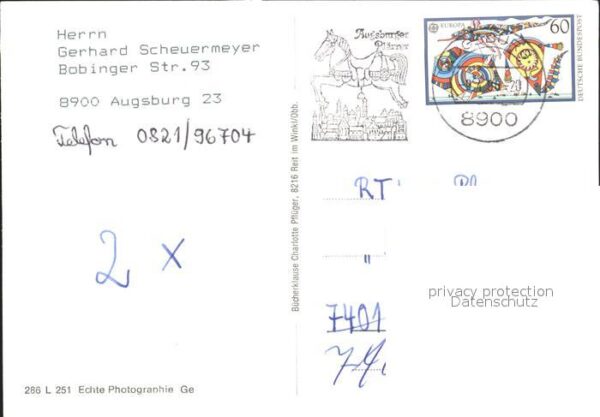 Herrn
Gerhard Scheuermeyer
Bobinger Str.93
8900 Augsburg 23
Telefon 0821/96704
2 x
286 L 251 Echte Photographie Ge
Bücherklause Charlotte Pflüger, 8216 Reit im Winkl/Obb.
Augsburger
Plärrer
EUROPA
60
DEUTSCHE BUNDESPOST
8900
RT
7401
privacy protection
Datenschutz